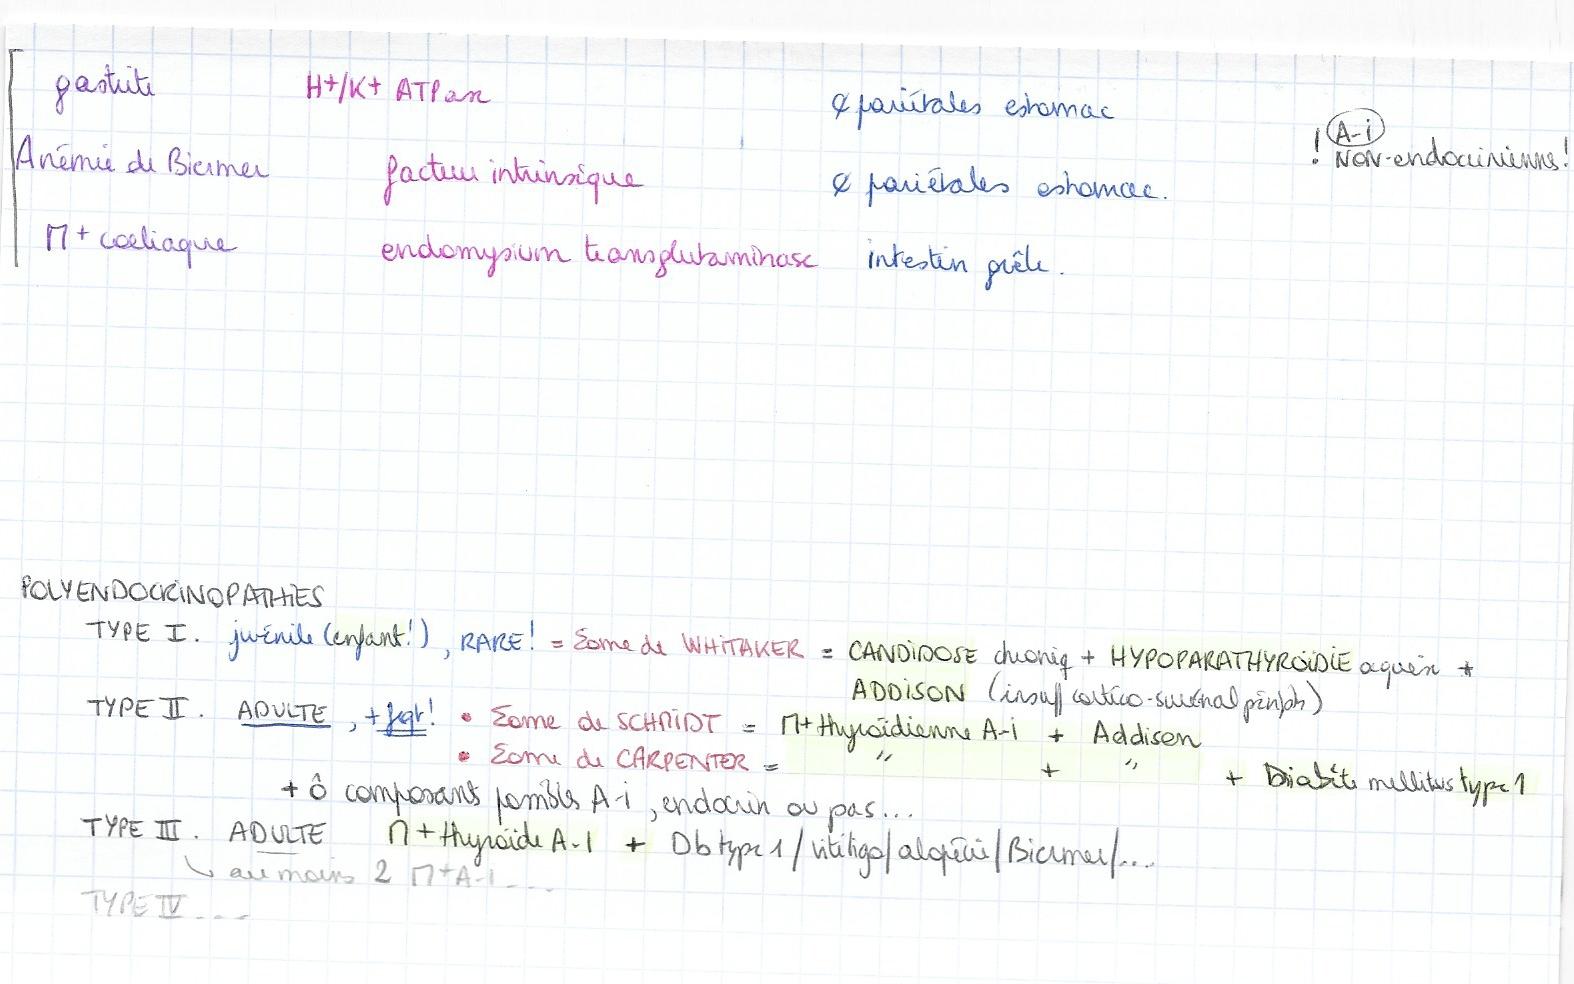 gastrite H+/K+ ATPase ¢ pariétales estomac
! A-i
NON-endocrinienne!
Anémie de Biermer facteur intrinsèque ¢ pariétales estomac.
Π+ coeliaque endomysium transglutaminase intestin grêle.
POLYENDOCRINOPATHIES
TYPE I. juvénile (enfant!), RARE! = Σome de WHITAKER = CANDIDOSE chroniq + HYPOPARATHYROÏDIE aquise +
ADDISON (insuff cortico-surrénal périph)
TYPE II. ADULTE, + fqt! • Σome de SCHMIDT = Π+ thyroïdienne A-i + Addison
• Σome de CARPENTER = " + " + Diabète mellitus type 1
+ ô composants possibles A-i, endocrin ou pas...
TYPE III. ADULTE Π+ thyroïde A-I + Db type 1 / vitiligo / alopécie / Biermer / ...
↳ au moins 2 Π+ A-I ...
TYPE IV ...